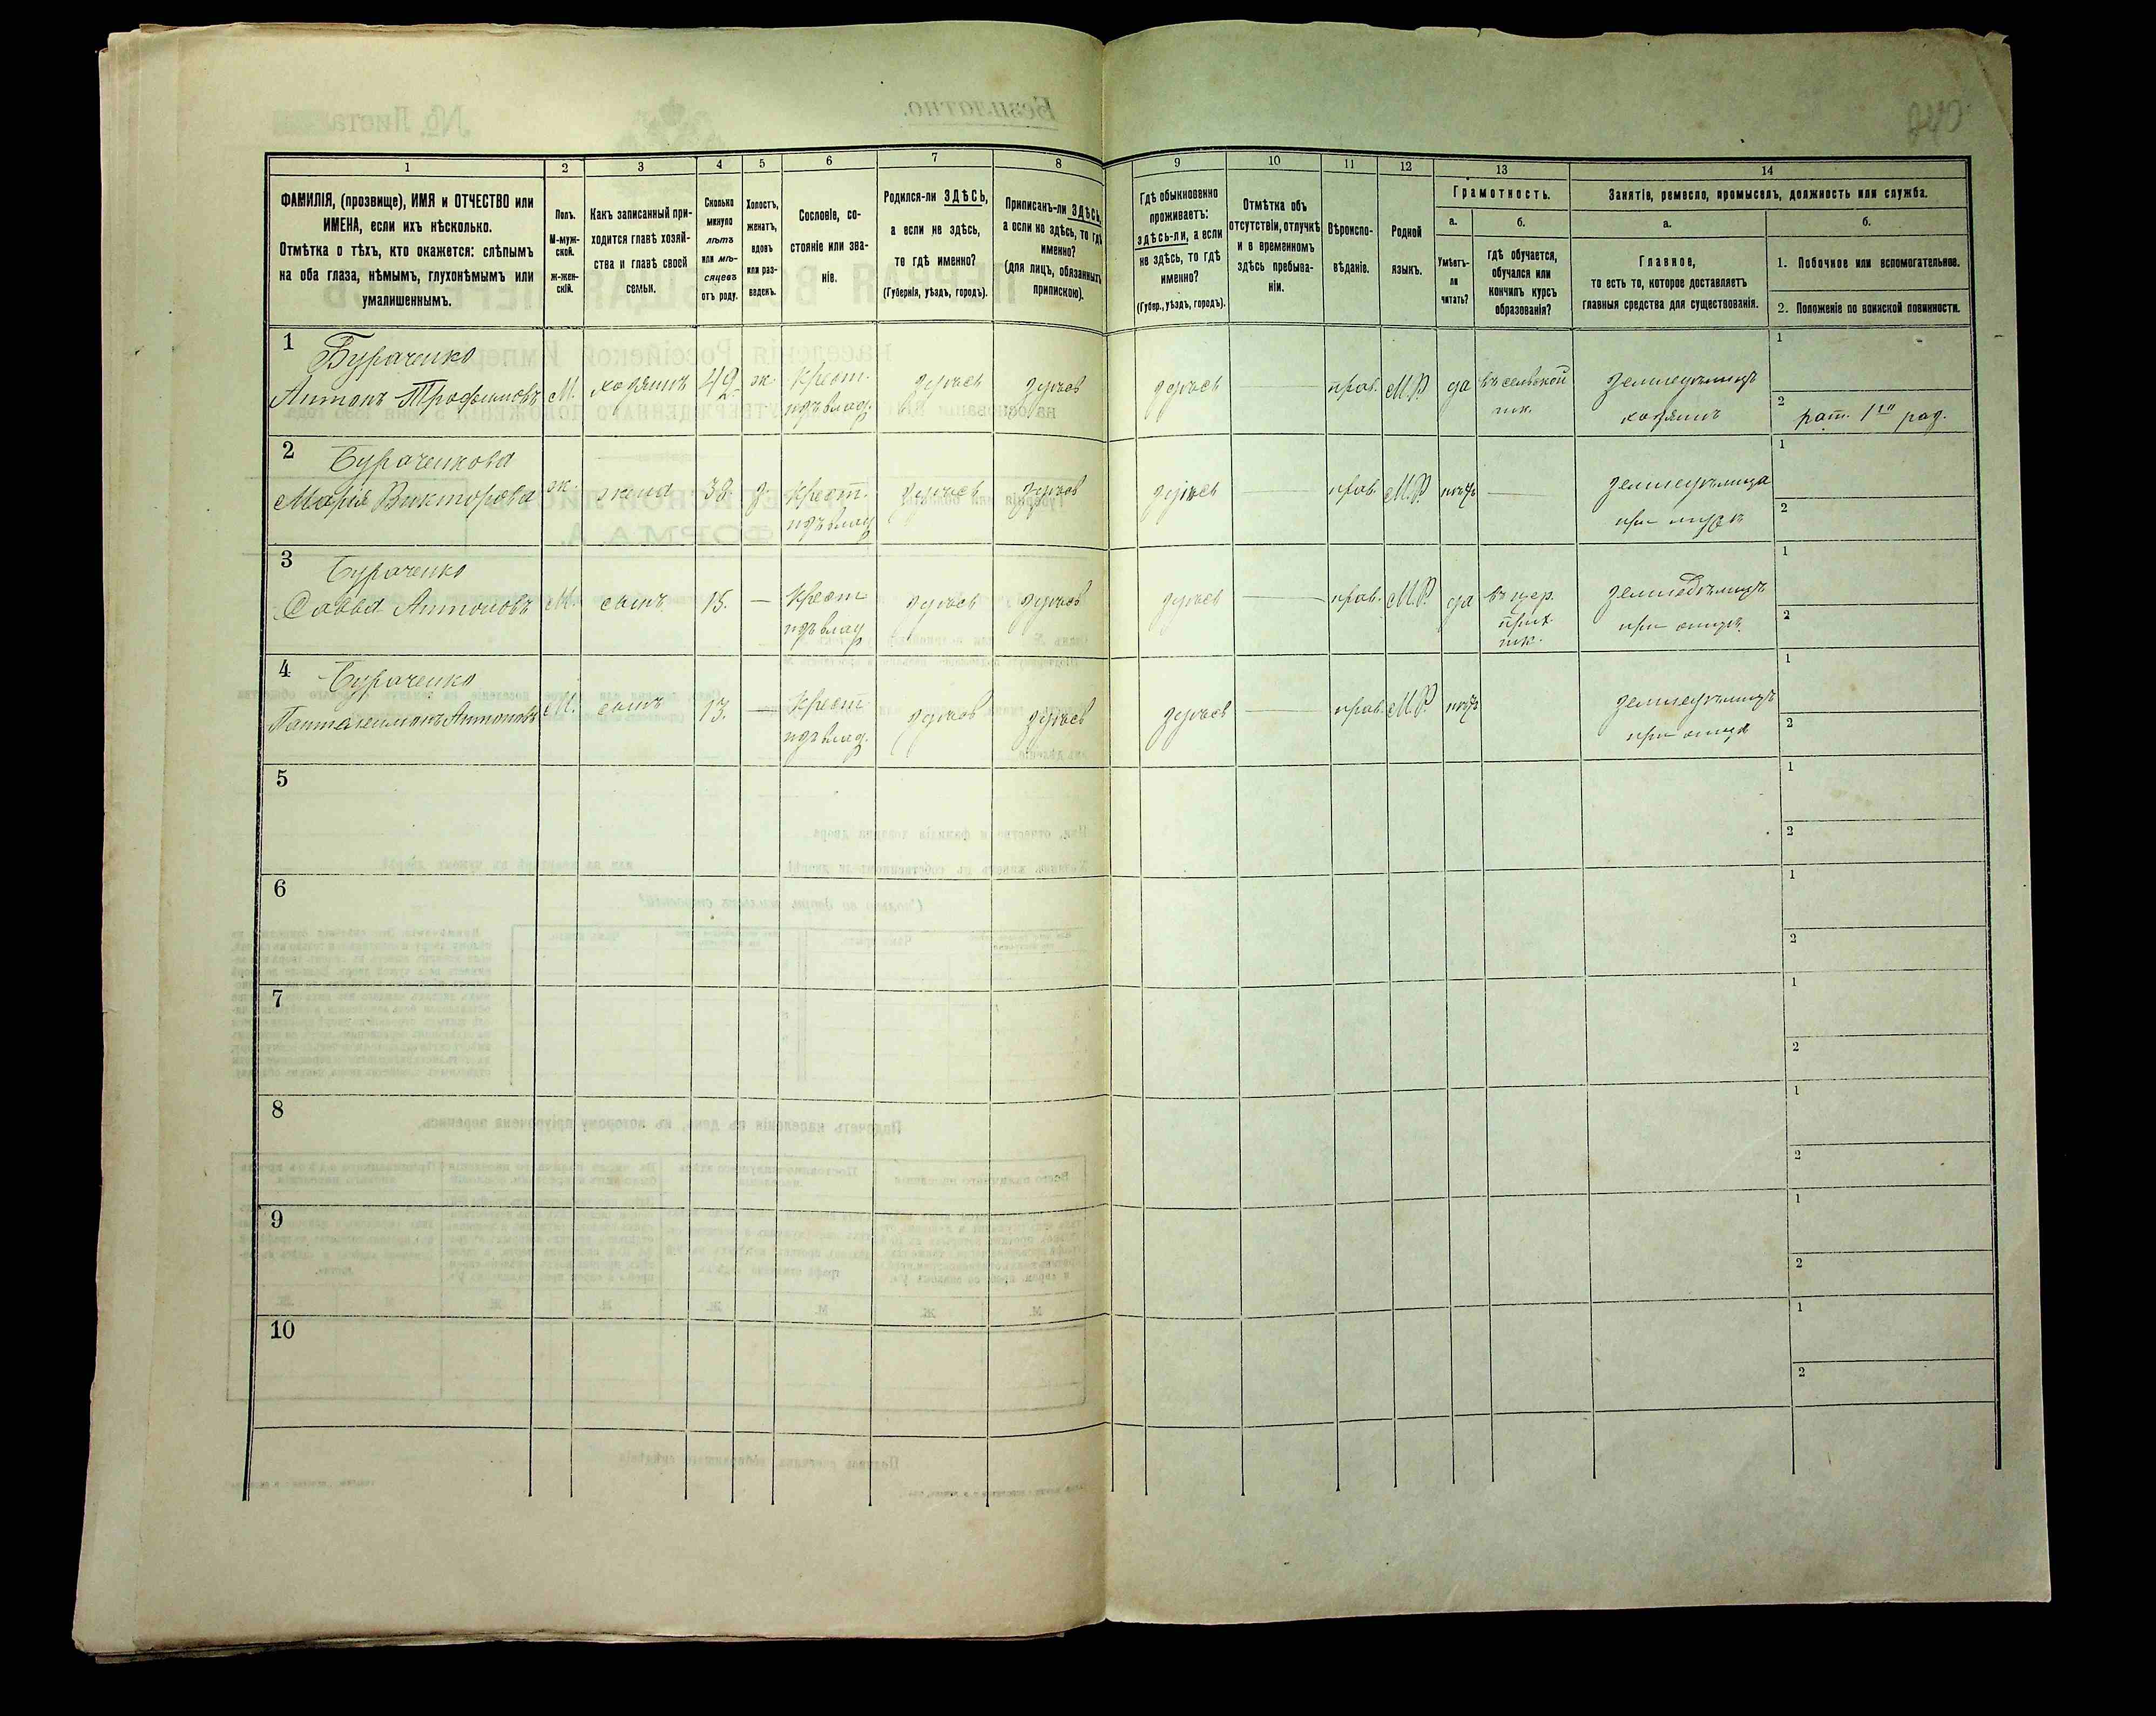 240
1
2
3
4
5
6
7
8
9
10
11
12
13
14
ФАМИЛІЯ, (прозвище), ИМЯ и ОТЧЕСТВО или
ИМЕНА, если ихъ нѣсколько.
Отмѣтка о тѣхъ, кто окажется: слѣпымъ
на оба глаза, нѣмымъ, глухонѣмымъ или
умалишеннымъ.
Полъ.
М-муж-
ской.
ж-жен-
скій.
Какъ записанный при-
ходится главѣ хозяй-
ства и главѣ своей
семьи.
Сколько
минуло
лѣтъ
или мѣ-
сяцевъ
отъ роду.
Холостъ,
женатъ,
вдовъ
или раз-
веденъ.
Сословіе, со-
стояніе или зва-
ніе.
Родился-ли ЗДѢСЬ,
а если не здѣсь,
то гдѣ именно?
(Губернія, уѣздъ, городъ).
Приписанъ-ли ЗДѢСЬ,
а если не здѣсь, то гдѣ
именно?
(для лицъ, обязанныхъ
припискою).
Гдѣ обыкновенно
проживаетъ:
здѣсь-ли, а если
не здѣсь, то гдѣ
именно?
(Губер., уѣздъ, городъ).
Отмѣтка объ
отсутствіи, отлучкѣ
и в временномъ
здѣсь пребыва-
ніи.
Вѣроиспо-
вѣданіе.
Родной
языкъ.
Грамотность.
а.
Умѣетъ-
ли
читать?
б.
гдѣ обучается,
обучался или
кончилъ курсъ
образованія?
Занятіе, ремесло, промыселъ, должность или служба.
а.
Главное,
то есть то, которое доставляетъ
главныя средства для существованія.
б.
1. Побочное или вспомогательное.
2. Положеніе по воинской повинности.
1
Бураченко
Антонъ Трофимовъ
М.
хозяинъ
49.
ж.
Крест.
здѣсь
здѣсь
здѣсь
прав.
М.Р.
да
въ сельской
шк.
земледѣлецъ
хозяинъ
1
2
рат. 1го раз.
2
Бураченкова
Марія Викторова
ж.
жена
38
з
Крест.
здѣсь
здѣсь
здѣсь
прав.
М.Р.
нѣтъ
земледѣлица
при мужѣ
1
2
3
Бураченко
Савва Антоновъ
М.
сынъ
15.
—
Крест
здѣсь
здѣсь
здѣсь
прав.
М.Р.
да
въ цер.
прих
шк.
земледѣлецъ
при отцѣ
1
2
4
Бураченко
Пантелеимонъ Антоновъ
М.
сынъ
13.
—
Крест
здѣсь
здѣсь
здѣсь
прав.
М.Р.
нѣтъ
земледѣлецъ
при отцѣ
1
2
5
1
2
6
1
2
7
1
2
8
1
2
9
1
2
10
1
2